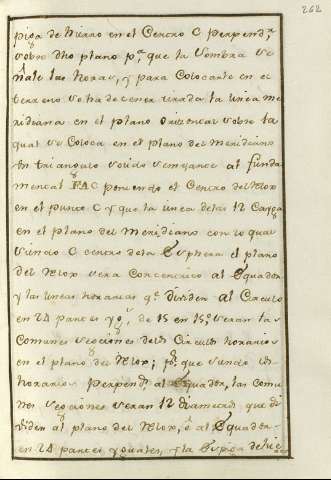 262
piga de hierro en el Centro C perpend.r
sobre dho plano p.a que la sombra se
ñale las horas, y para colocarle en el
terreno se ha de tener tirada la linea me
ridiana en el plano orizontal sobre la
qual se coloca en el plano del meridiano
un triangulo solido semejante al funda
mental FAC poniendo el Centro del Relox
en el punto C y que la linea de las 12 Cayga
en el plano del meridiano con lo qual
siendo C centro de la Esphera el plano
del Relox sera concentrico al Equador
y las lineas horarias q.e dividen al Circulo
en 24 partes yg.s de 15 en 15.o seran las
comunes secciones de los Circulos horarios
en el plano del Relox; p.r que siendo los
horarios perpend.s al Equador, las comu
nes secciones seran 12 diametros que di
viden al plano del Relox, o al Equador
en 24 partes yguales, y la Espiga de hie